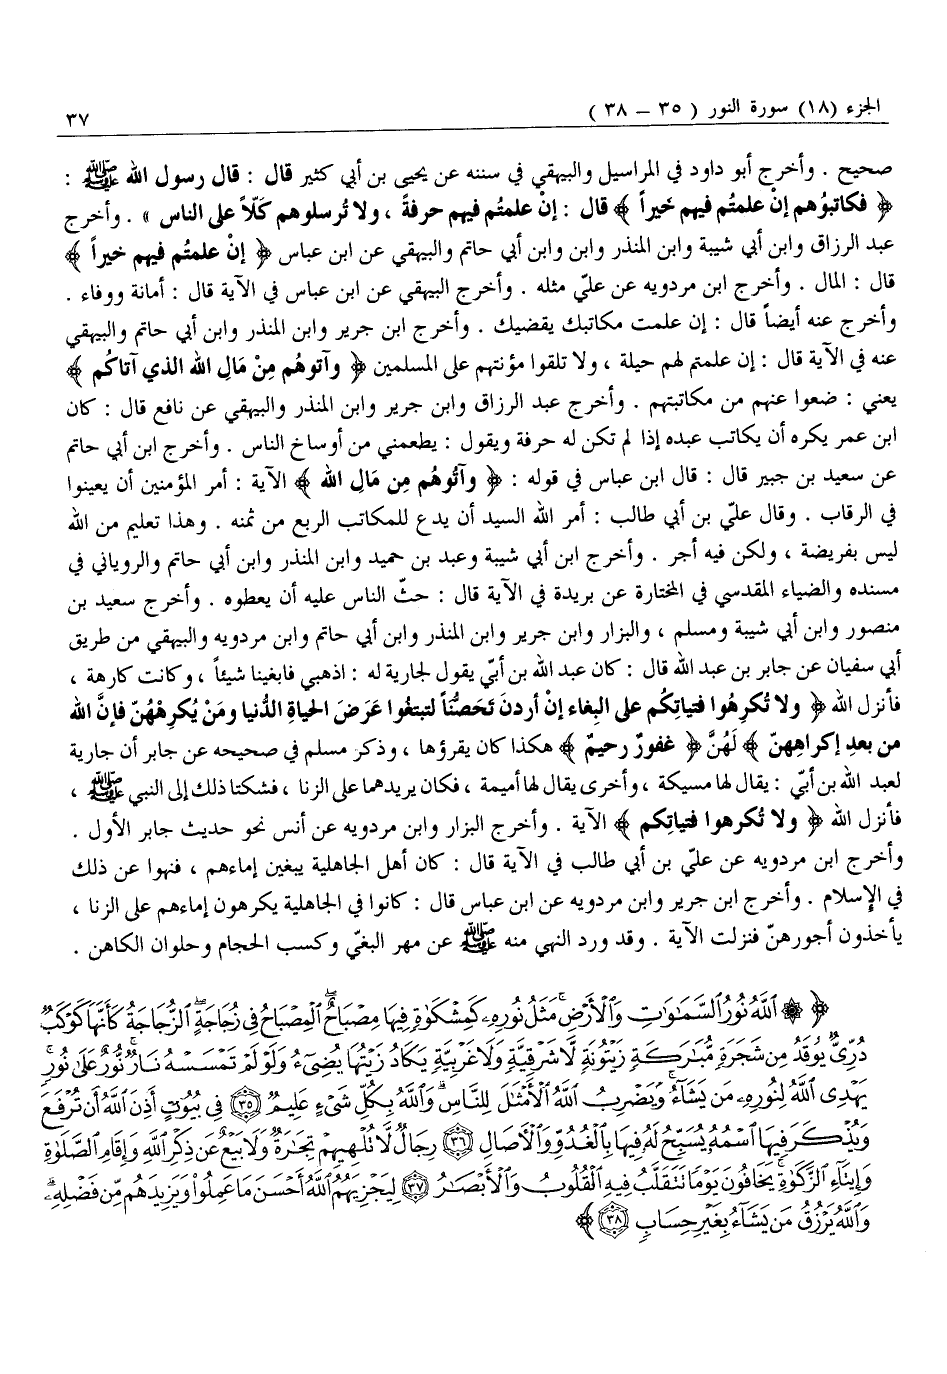 الجزء (١٨) سورة النور ( ٣٥ - ٣٨ ) ٣٧
صحيح . وأخرج أبو داود في المراسيل والبيهقي في سننه عن يحيى بن أبي كثير قال : قال رسول الله ﷺ :
﴿ فكاتبُوهم إنْ علمتُم فيهم خيراً ﴾ قال : إن علمتُم فيهم حرفةً ، ولا تُرسلوهم كَلّاً على الناس » . وأخرج
عبد الرزاق وابن أبي شيبة وابن المنذر وابن وابن أبي حاتم والبيهقي عن ابن عباس ﴿ إنْ علمتُم فيهم خيراً ﴾
قال : المال . وأخرج ابن مردويه عن عليّ مثله . وأخرج البيهقي عن ابن عباس في الآية قال : أمانة ووفاء .
وأخرج عنه أيضاً قال : إن علمت مكاتبك يقضيك . وأخرج ابن جرير وابن المنذر وابن أبي حاتم والبيهقي
عنه في الآية قال : إن علمتم لهم حيلة ، ولا تلقوا مؤنتهم على المسلمين ﴿ وآتوهُم مِنْ مَالِ الله الذي آتاكُم ﴾
يعني : ضعوا عنهم من مكاتبتهم . وأخرج عبد الرزاق وابن جرير وابن المنذر والبيهقي عن نافع قال : كان
ابن عمر يكره أن يكاتب عبده إذا لم تكن له حرفة ويقول : يطعمني من أوساخ الناس . وأخرج ابن أبي حاتم
عن سعيد بن جبير قال : قال ابن عباس في قوله : ﴿ وآتُوهُم مِن مَالِ الله ﴾ الآية : أمر المؤمنين أن يعينوا
في الرقاب . وقال عليّ بن أبي طالب : أمر الله السيد أن يدع للمكاتب الربع من ثمنه . وهذا تعليم من الله
ليس بفريضة ، ولكن فيه أجر . وأخرج ابن أبي شيبة وعبد بن حميد وابن المنذر وابن أبي حاتم والروياني في
مسنده والضياء المقدسي في المختارة عن بريدة في الآية قال : حثّ الناس عليه أن يعطوه . وأخرج سعيد بن
منصور وابن أبي شيبة ومسلم ، والبزار وابن جرير وابن المنذر وابن أبي حاتم وابن مردويه والبيهقي من طريق
أبي سفيان عن جابر بن عبد الله قال : كان عبد الله بن أبيّ يقول لجارية له : اذهبي فابغينا شيئاً ، وكانت كارهة ،
فأنزل الله ﴿ ولا تُكرِهُوا فتياتِكُم على البِغاء إنْ أردنَ تَحَصُّناً لتبتغُوا عَرَضَ الحياةِ الدُّنيا ومَنْ يُكرِهْهُنّ فإنَّ الله
من بعدِ إكراهِهنّ ﴾ لَهُنَّ ﴿ غفورٌ رحيمٌ ﴾ هكذا كان يقرؤها ، وذكر مسلم في صحيحه عن جابر أن جارية
لعبد الله بن أبيّ : يقال لها مسيكة ، وأخرى يقال لها أميمة ، فكان يريدهما على الزنا ، فشكتا ذلك إلى النبي ﷺ ،
فأنزل الله ﴿ ولا تُكرهوا فتياتِكم ﴾ الآية . وأخرج البزار وابن مردويه عن أنس نحو حديث جابر الأول .
وأخرج ابن مردويه عن عليّ بن أبي طالب في الآية قال : كان أهل الجاهلية يبغين إماءهم ، فنهوا عن ذلك
في الإسلام . وأخرج ابن جرير وابن مردويه عن ابن عباس قال : كانوا في الجاهلية يكرهون إماءهم على الزنا ،
يأخذون أجورهنّ فنزلت الآية . وقد ورد النهي منه ﷺ عن مهر البغيّ وكسب الحجام وحلوان الكاهن .
﴿ ۞ ٱللَّهُ نُورُ ٱلسَّمَٰوَٰتِ وَٱلْأَرْضِ ۚ مَثَلُ نُورِهِۦ كَمِشْكَوٰةٍ فِيهَا مِصْبَاحٌ ۖ ٱلْمِصْبَاحُ فِى زُجَاجَةٍ ۖ ٱلزُّجَاجَةُ كَأَنَّهَا كَوْكَبٌ
دُرِّىٌّ يُوقَدُ مِن شَجَرَةٍ مُّبَٰرَكَةٍ زَيْتُونَةٍ لَّا شَرْقِيَّةٍ وَلَا غَرْبِيَّةٍ يَكَادُ زَيْتُهَا يُضِىٓءُ وَلَوْ لَمْ تَمْسَسْهُ نَارٌ ۚ نُّورٌ عَلَىٰ نُورٍ ۗ
يَهْدِى ٱللَّهُ لِنُورِهِۦ مَن يَشَآءُ ۚ وَيَضْرِبُ ٱللَّهُ ٱلْأَمْثَٰلَ لِلنَّاسِ ۗ وَٱللَّهُ بِكُلِّ شَىْءٍ عَلِيمٌ ٣٥ فِى بُيُوتٍ أَذِنَ ٱللَّهُ أَن تُرْفَعَ
وَيُذْكَرَ فِيهَا ٱسْمُهُۥ يُسَبِّحُ لَهُۥ فِيهَا بِٱلْغُدُوِّ وَٱلْأَصَالِ ٣٦ رِجَالٌ لَّا تُلْهِيهِمْ تِجَٰرَةٌ وَلَا بَيْعٌ عَن ذِكْرِ ٱللَّهِ وَإِقَامِ ٱلصَّلَوٰةِ
وَإِيتَآءِ ٱلزَّكَوٰةِ ۙ يَخَافُونَ يَوْمًا تَتَقَلَّبُ فِيهِ ٱلْقُلُوبُ وَٱلْأَبْصَٰرُ ٣٧ لِيَجْزِيَهُمُ ٱللَّهُ أَحْسَنَ مَا عَمِلُوا۟ وَيَزِيدَهُم مِّن فَضْلِهِۦ ۗ
وَٱللَّهُ يَرْزُقُ مَن يَشَآءُ بِغَيْرِ حِسَابٍ ٣٨ ﴾